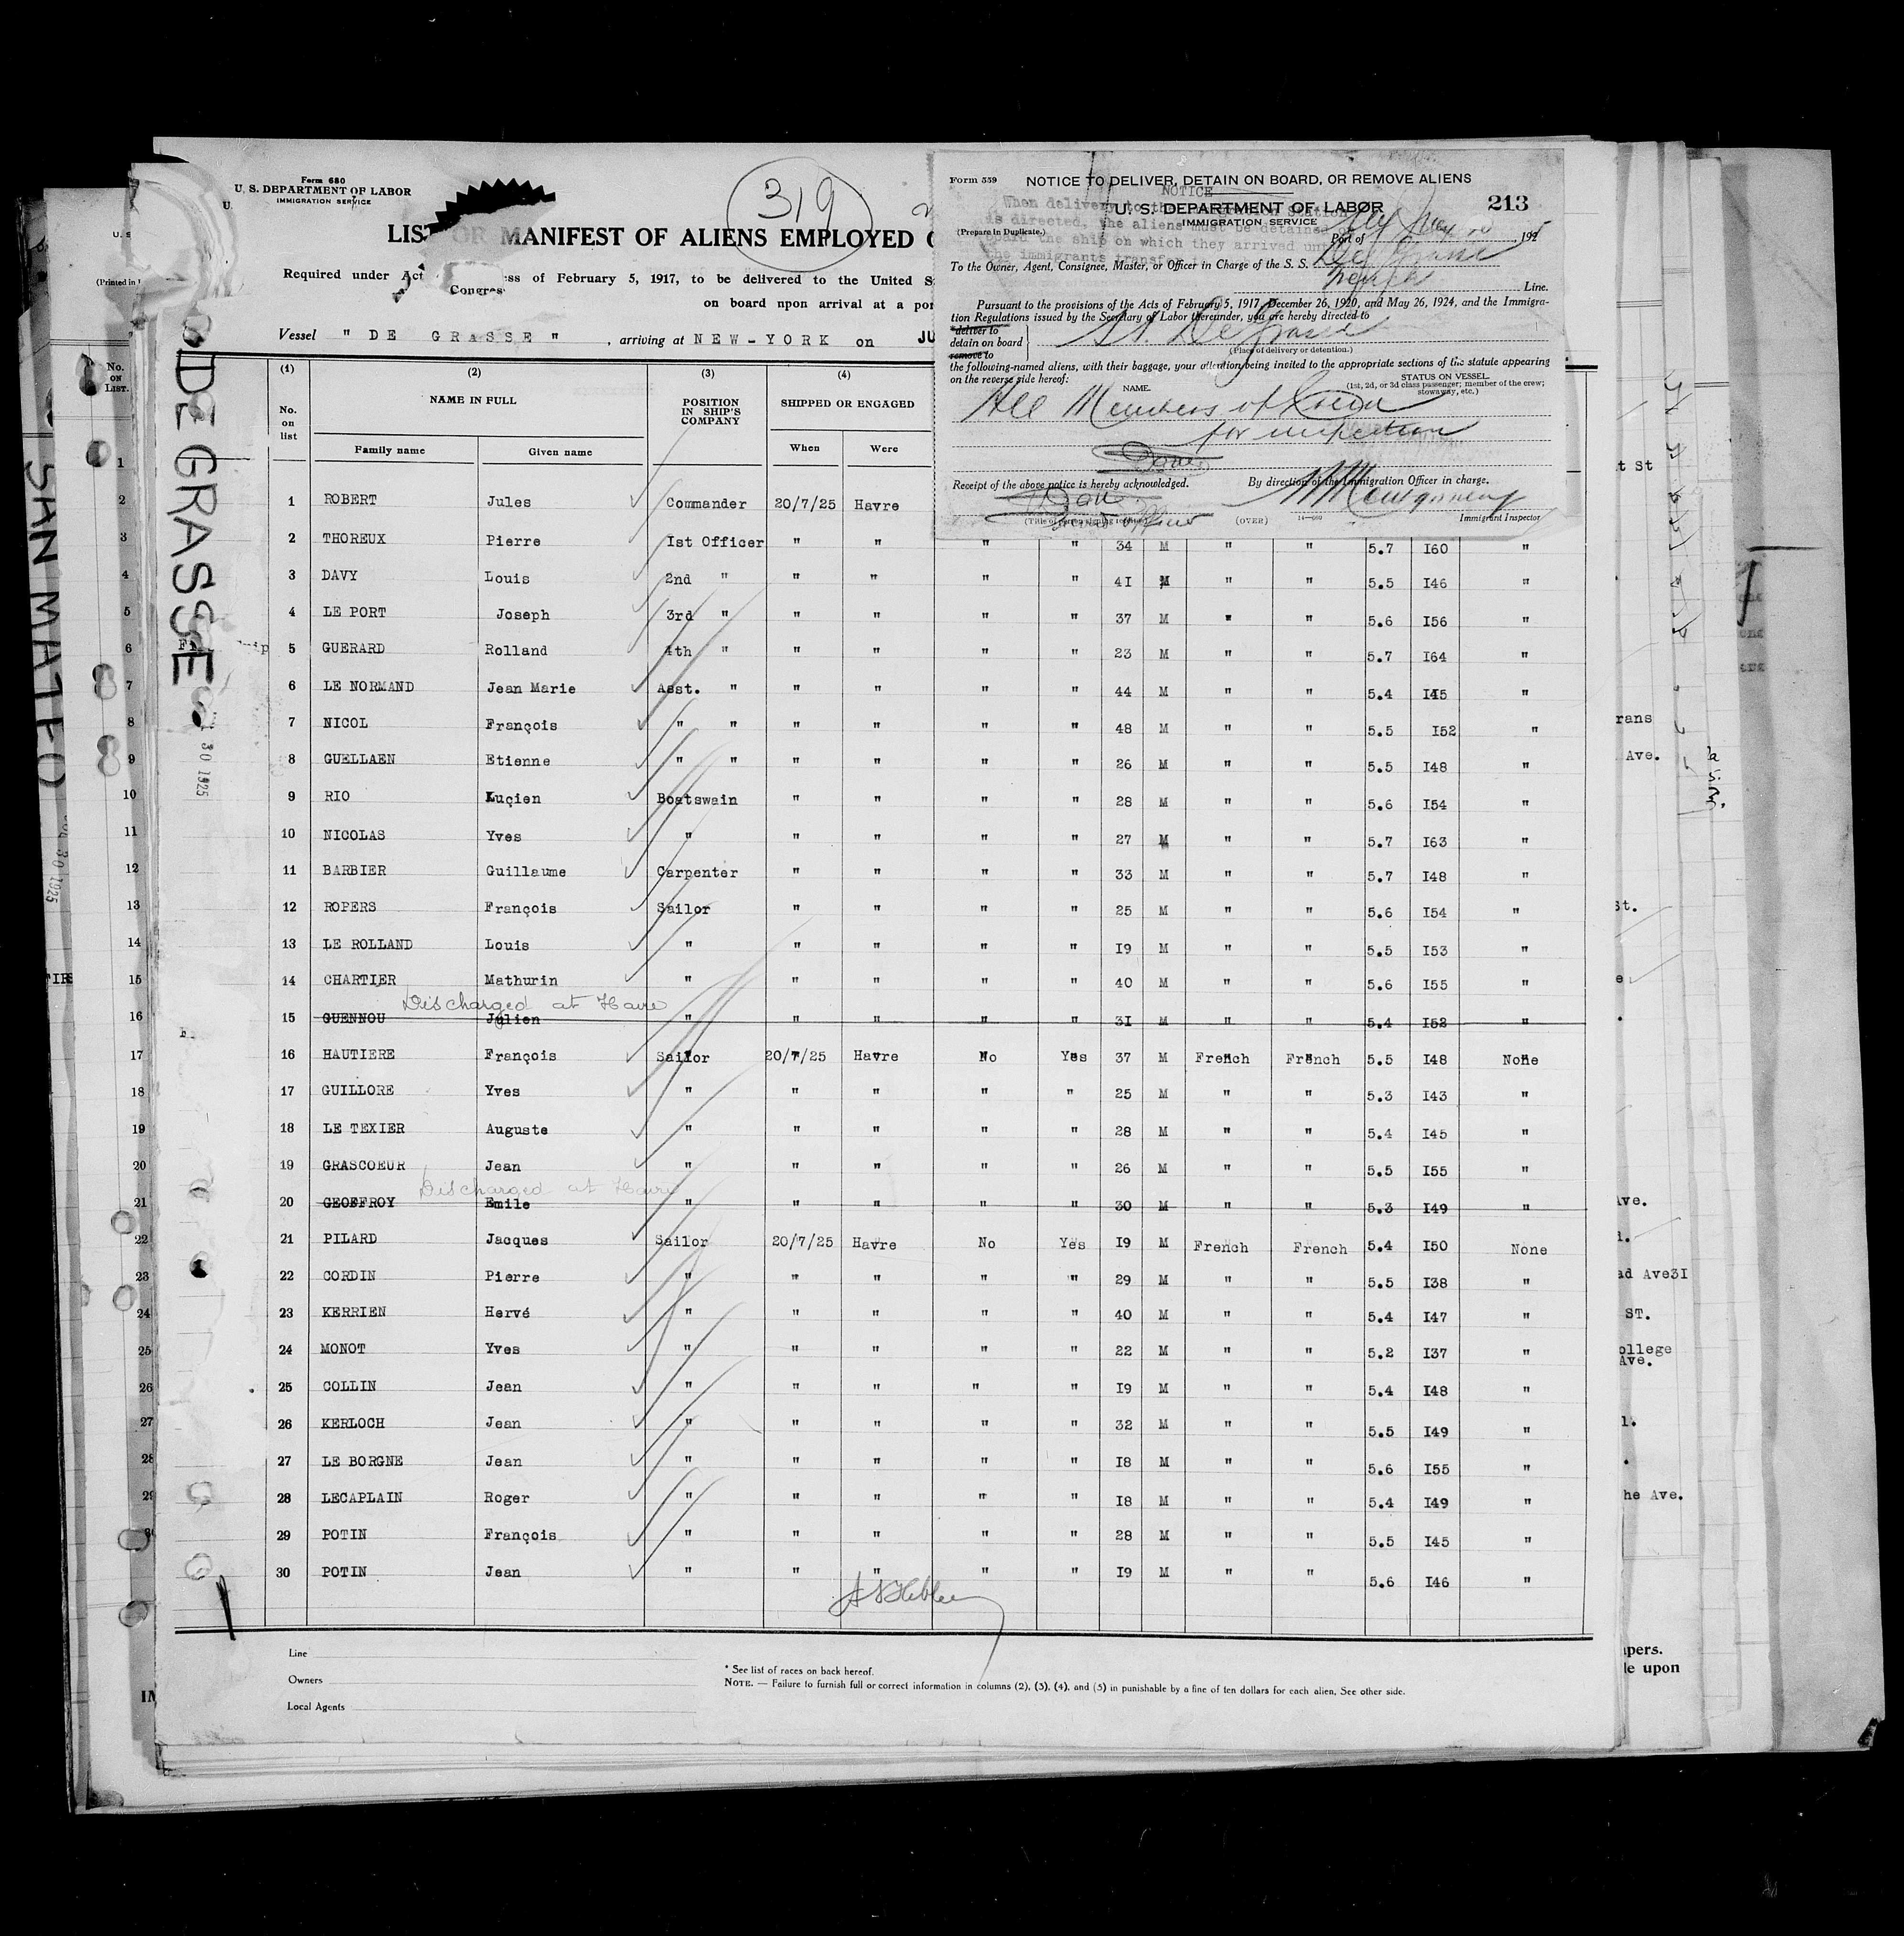 Form 680
U. S. DEPARTMENT OF LABOR
IMMIGRATION SERVICE
319
LIST OR MANIFEST OF ALIENS EMPLOYED
Required under Act Congress of February 5, 1917, to be delivered to the United
on board upon arrival at a
Vessel " DE GRASSE " , arriving at NEW-YORK on
Form 559 NOTICE TO DELIVER, DETAIN ON BOARD, OR REMOVE ALIENS
NOTICE
213
When delivery to the Station
is directed, the aliens must be detained
board the ship on which they arrived
the immigrants
U. S. DEPARTMENT OF LABOR
IMMIGRATION SERVICE
(Prepare in Duplicate.) Port of , 192
To the Owner, Agent, Consignee, Master, or Officer in Charge of the S. S. De Grasse
Line.
Pursuant to the provisions of the Acts of February 5, 1917, December 26, 1920, and May 26, 1924, and the Immigra-
tion Regulations issued by the Secretary of Labor thereunder, you are hereby directed to
*deliver to
detain on board
remove to
SS. De Grasse
(Place of delivery or detention.)
the following-named aliens, with their baggage, your attention being invited to the appropriate sections of the statute appearing
on the reverse side hereof:
NAME. STATUS ON VESSEL
(1st, 2d, or 3d class passenger; member of the crew;
stowaway, etc.)
All Members of Crew
for inspection
Receipt of the above notice is hereby acknowledged. By direction of the Immigration Officer in charge.
Montgomery
(OVER) 14—689 Immigrant Inspector
(1) (2) (3) (4)
No. on list NAME IN FULL POSITION IN SHIP'S COMPANY SHIPPED OR ENGAGED
Family name Given name When Were
1 ROBERT Jules Commander 20/7/25 Havre
2 THOREUX Pierre Ist Officer " " " " 34 M " " 5.7 I60 "
3 DAVY Louis 2nd " " " " " 4I M " " 5.5 I46 "
4 LE PORT Joseph 3rd " " " " " 37 M " " 5.6 I56 "
5 GUERARD Rolland 4th " " " " " 23 M " " 5.7 I64 "
6 LE NORMAND Jean Marie Asst. " " " " " 44 M " " 5.4 I45 "
7 NICOL François " " " " " " 48 M " " 5.5 I52 "
8 GUELLAEN Etienne " " " " " " 26 M " " 5.5 I48 "
9 RIO Luçien Boatswain " " " " 28 M " " 5.6 I54 "
10 NICOLAS Yves " " " " " 27 M " " 5.7 I63 "
11 BARBIER Guillaume Carpenter " " " " 33 M " " 5.7 I48 "
12 ROPERS François Sailor " " " " 25 M " " 5.6 I54 "
13 LE ROLLAND Louis " " " " " I9 M " " 5.5 I53 "
14 CHARTIER Mathurin " " " " " 40 M " " 5.6 I55 "
Discharged at Havre
15 GUENNOU Julien " " " " " 3I M " " 5.4 I52 "
16 HAUTIERE François Sailor 20/7/25 Havre No Yes 37 M French French 5.5 I48 None
17 GUILLORE Yves " " " " " 25 M " " 5.3 I43 "
18 LE TEXIER Auguste " " " " " 28 M " " 5.4 I45 "
19 GRASCOEUR Jean " " " " " 26 M " " 5.5 I55 "
Discharged at Havre
20 GEOFFROY Emile " " " " " 30 M " " 5.3 I49 "
21 PILARD Jacques Sailor 20/7/25 Havre No Yes I9 M French French 5.4 I50 None
22 CORDIN Pierre " " " " " 29 M " " 5.5 I38 "
23 KERRIEN Hervé " " " " " 40 M " " 5.4 I47 "
24 MONOT Yves " " " " " 22 M " " 5.2 I37 "
25 COLLIN Jean " " " " " I9 M " " 5.4 I48 "
26 KERLOCH Jean " " " " " 32 M " " 5.5 I49 "
27 LE BORGNE Jean " " " " " I8 M " " 5.6 I55 "
28 LECAPLAIN Roger " " " " " I8 M " " 5.4 I49 "
29 POTIN François " " " " " 28 M " " 5.5 I45 "
30 POTIN Jean " " " " " I9 M " " 5.6 I46 "
Line
Owners
Local Agents
* See list of races on back hereof.
NOTE. — Failure to furnish full or correct information in columns (2), (3), (4), and (5) in punishable by a fine of ten dollars for each alien, See other side.
DE GRASSE
30 1925
SAN MATEO
30 1925
No. on List.
1
2
3
4
5
6
7
8
9
10
11
12
13
14
15
16
17
18
19
20
21
22
23
24
25
26
27
28
Ave.
St.
Ave.
ad Ave3I
ST.
ollege
Ave.
he Ave.
upon